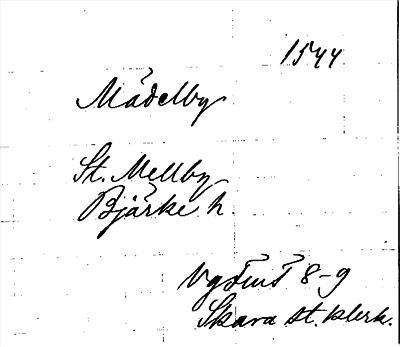 1544
Mädelby
St. Mellby
Bjärke h.
Vg Fmt 8-9
Skara st. klerk.